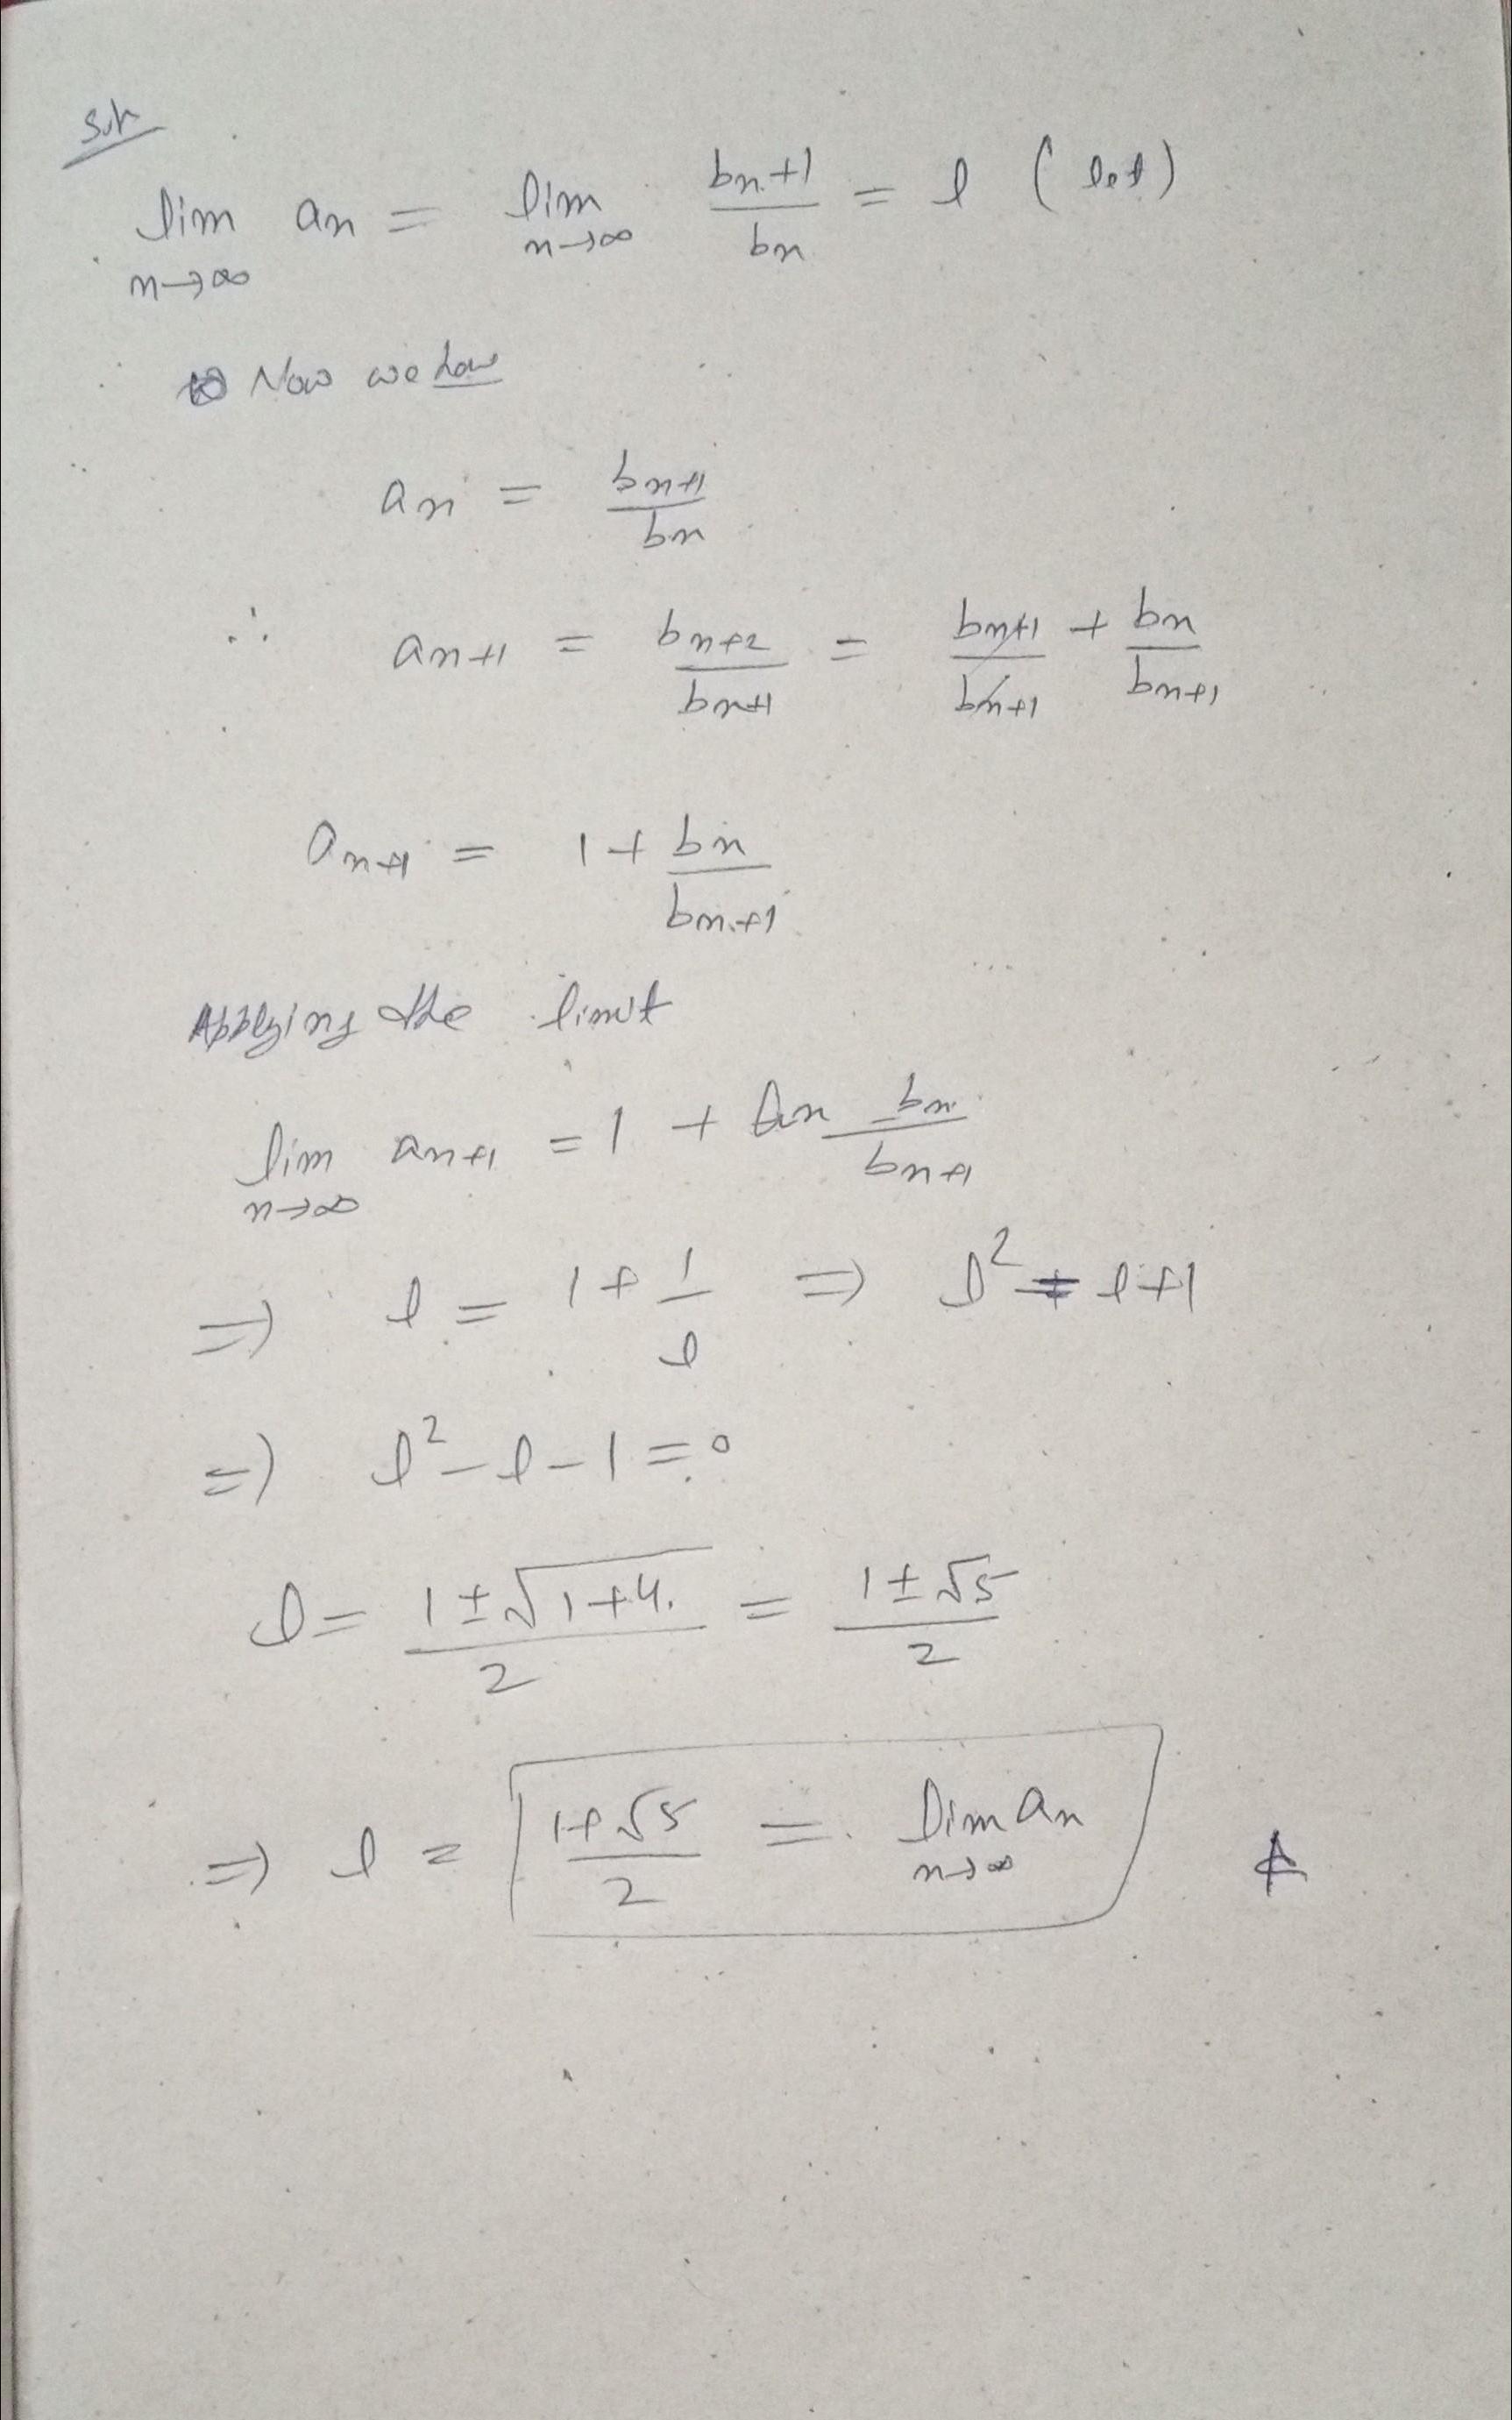 Soln
lim n→∞ an = lim n→∞ bn+1 / bn = l (let)
Now we have
an = bn+1 / bn
∴ an+1 = bn+2 / bn+1 = bn+1 / bn+1 + bn / bn+1
an+1 = 1 + bn / bn+1
Applying the limit
lim n→∞ an+1 = 1 + lim bn / bn+1
⇒ l = 1 + 1 / l ⇒ l² = l+1
⇒ l² - l - 1 = 0
l = 1 ± √1+4 / 2 = 1 ± √5 / 2
⇒ l = 1+√5 / 2 = lim n→∞ an